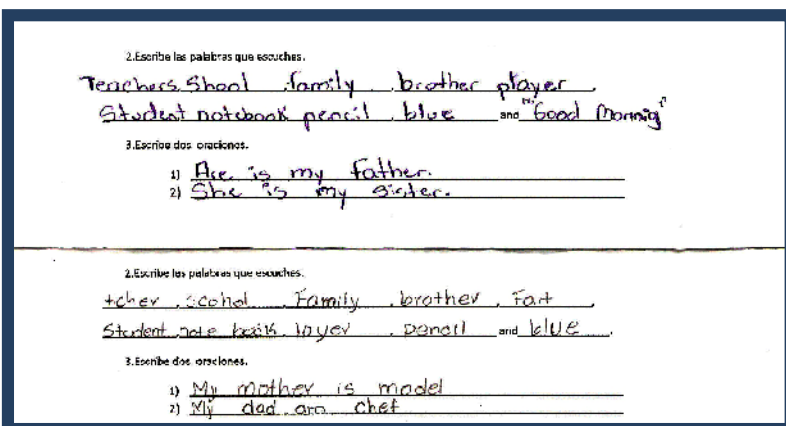 2.Escribe las palabras que escuches.
Teachers, Shool, family, brother player,
Student notebook pencil, blue and "Good Mornnig"
3.Escribe dos oraciones.
1) Hee is my father.
2) She is my sister.
2.Escribe las palabras que escuches.
tcher, scohol, Family, brother,
Student note book, layer, pencil and blue.
3.Escribe dos oraciones.
1) My mother is model
2) My dad are chef